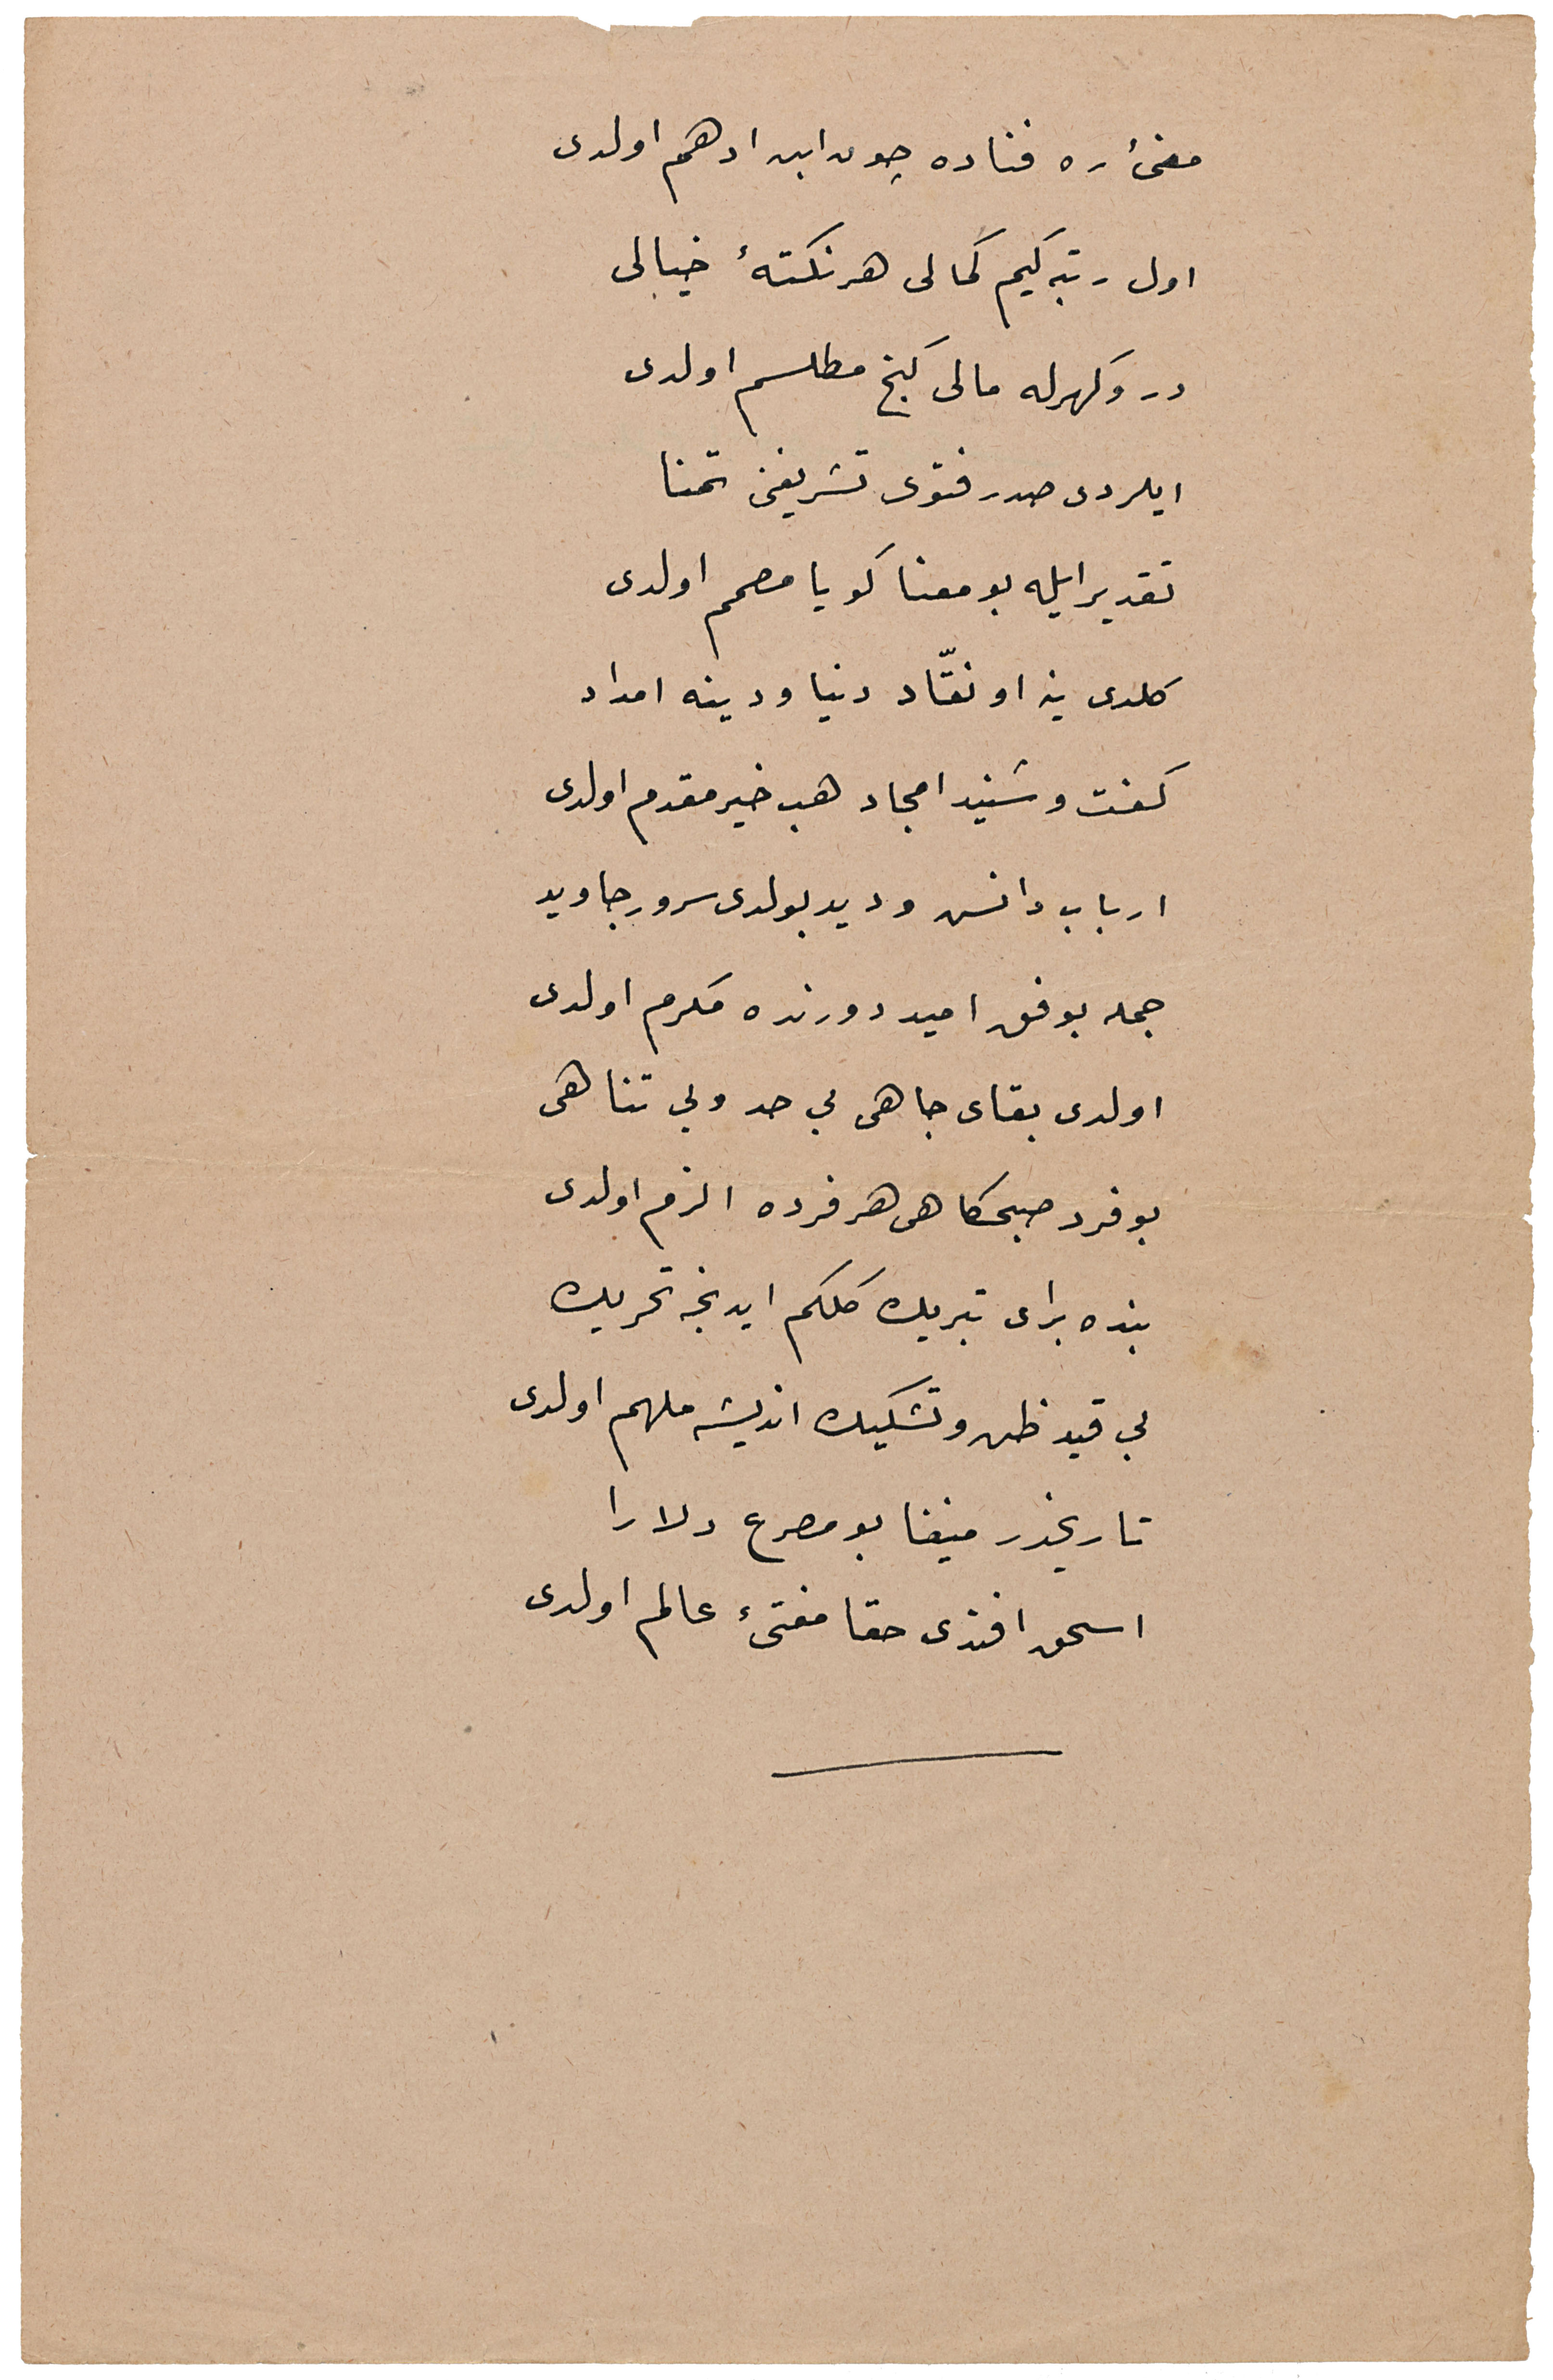 مغنئ ره فناده چون ابن ادهم اولدی
اول رتبه كیم كمالی هر نكتهٔ خیالی
در و كهرله مالی كنج مطلسم اولدی
ایلردی صدر فتوی تشریفن تمنا
تقدیر ایله بو معنا كویا مصمم اولدی
كلدی ینه او نقّاد دنیا و دینه امداد
كفت و شنید امجاد هب خیر مقدم اولدی
ارباب دانش و دید بولدی سرور جاوید
جمله بوفق امید دورنده مكرم اولدی
اولدی بقای جاهی بی حد و بی تناهی
بو فرد صبحكاهی هر فرده الزم اولدی
بنده برای تبریك كلكم ایدنجه تحریك
بی قید ظن و تشكیك اندیشه ملهم اولدی
تاریخیدر منیفا بو مصرع دلارا
اسحق افندی حقا مفتئ عالم اولدی